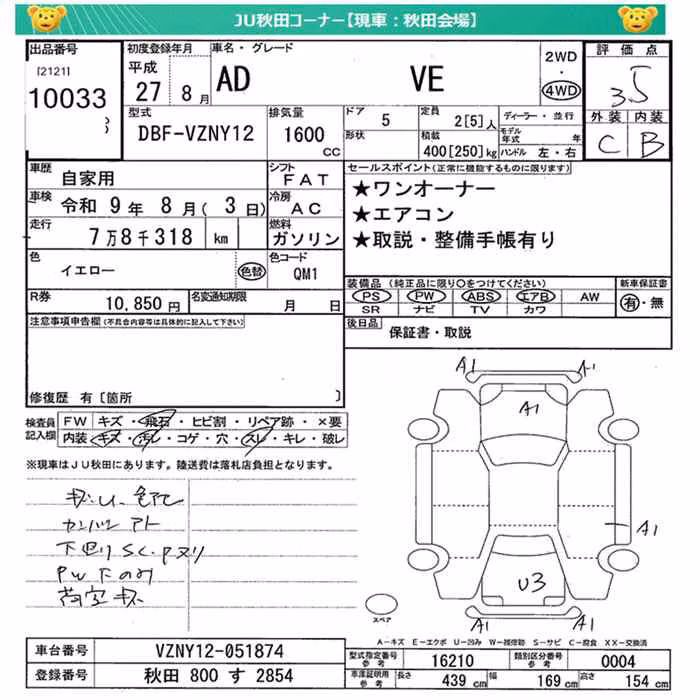 JU秋田コーナー【現車：秋田会場】
出品番号 [2121] 10033
初度登録年月 平成 27 8 月
車名・グレード AD VE
2WD ・ 4WD
評価点 3.5
外装 内装
C B
型式 DBF-VZNY12
排気量 1600 CC
ドア 5
形状
定員 2[5] 人
積載 400[250] kg
ディーラー・並行
モデル年式 年
ハンドル 左・右
車歴 自家用
シフト FAT
車検 令和 9 年 8 月( 3 日)
冷房 AC
走行 7万8千318 km
燃料 ガソリン
色 イエロー 色替
色コード QM1
R券 10,850 円
名変通知期限 月 日
セールスポイント(正常に機能するものに限ります)
★ワンオーナー
★エアコン
★取説・整備手帳有り
装備品 (純正品に限り○をつけてください)
PS PW ABS エアB AW
SR ナビ TV カワ
新車保証書 有・無
後日品 保証書・取説
注意事項申告欄 (不具合内容等は具体的に記入して下さい)
修復歴 有〔箇所 〕
検査員記入欄
FW キズ・飛石・ヒビ割・リペア跡・×要
内装 キズ・汚レ・コゲ・穴・スレ・キレ・破レ
※現車はJU秋田にあります。陸送費は落札店負担となります。
カンバン アト
下廻り SC.Pヌリ
PW 下のみ
荷室 キズ
A1 A1
A1
A1
U3
A1 A1
スペア
A-キズ E-エクボ U-凹み W-補修跡 S-サビ C-腐食 XX-交換済
車台番号 VZNY12-051874
登録番号 秋田 800 す 2854
型式指定番号 参考 16210
類別区分番号 参考 0004
車庫証明用 参考 長さ 439 cm 幅 169 cm 高さ 154 cm